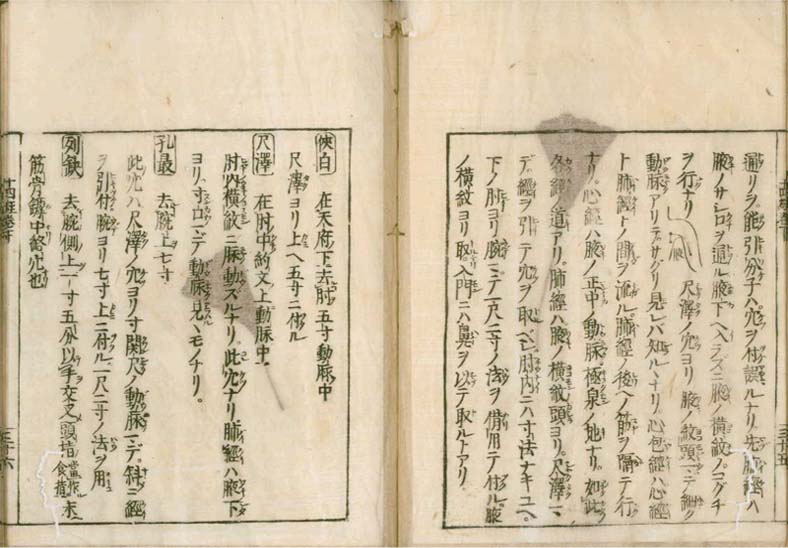 通リヲ能引分子ハ穴ヲ付誤ルナリ先肺經ハ
腋ノサシロヲ通ル腋下ヘ入ラズニ腋ノ横紋ノコグチ
ヲ行ナリ 腋 尺澤ノ穴ヨリ腋紋頭マデ細ク
動脉アリテサグリ見レバ知ルヽナリ心包經ハ心經
ト肺經トノ間ヲ流ル肺經ノ後ヘノ筋ヲ隔テ行
ナリ。心經ハ腋ノ正中ノ動脉極泉ノ地ナリ。如此
各經ノ道アリ。肺經ハ腋ノ横紋頭ヨリ。尺澤マ
デ經ヲ引テ穴ヲ取ベシ肘内ニハ寸法ナキユヘ。
下ノ肘ヨリ腕マデ一尺二寸ノ法ヲ借用テ付ル腋
ノ横紋ヨリ取。入門ニハ鼻ヲ以テ取ルトアリ
三十五
俠白 在天府下去肘五寸動脉中
尺澤ヨリ上ヘ五寸ニ付ル
尺澤 在肘中約文上動脉中
肘内横紋ニ脉動ズルナリ。此穴ナリ肺經ハ腋下
ヨリ寸口マデ動脉見ユモノナリ。
孔最 去腕上七寸
此穴ハ尺澤ノ穴ヨリ寸関尺ノ動脉マデ。斜ニ經
ヲ引付腕ヨリ七寸上ニ付ル一尺二寸ノ法ヲ用
列缺 去腕側上一寸五分以手交叉頭指當作食指末
筋骨罅中故穴也
三十六